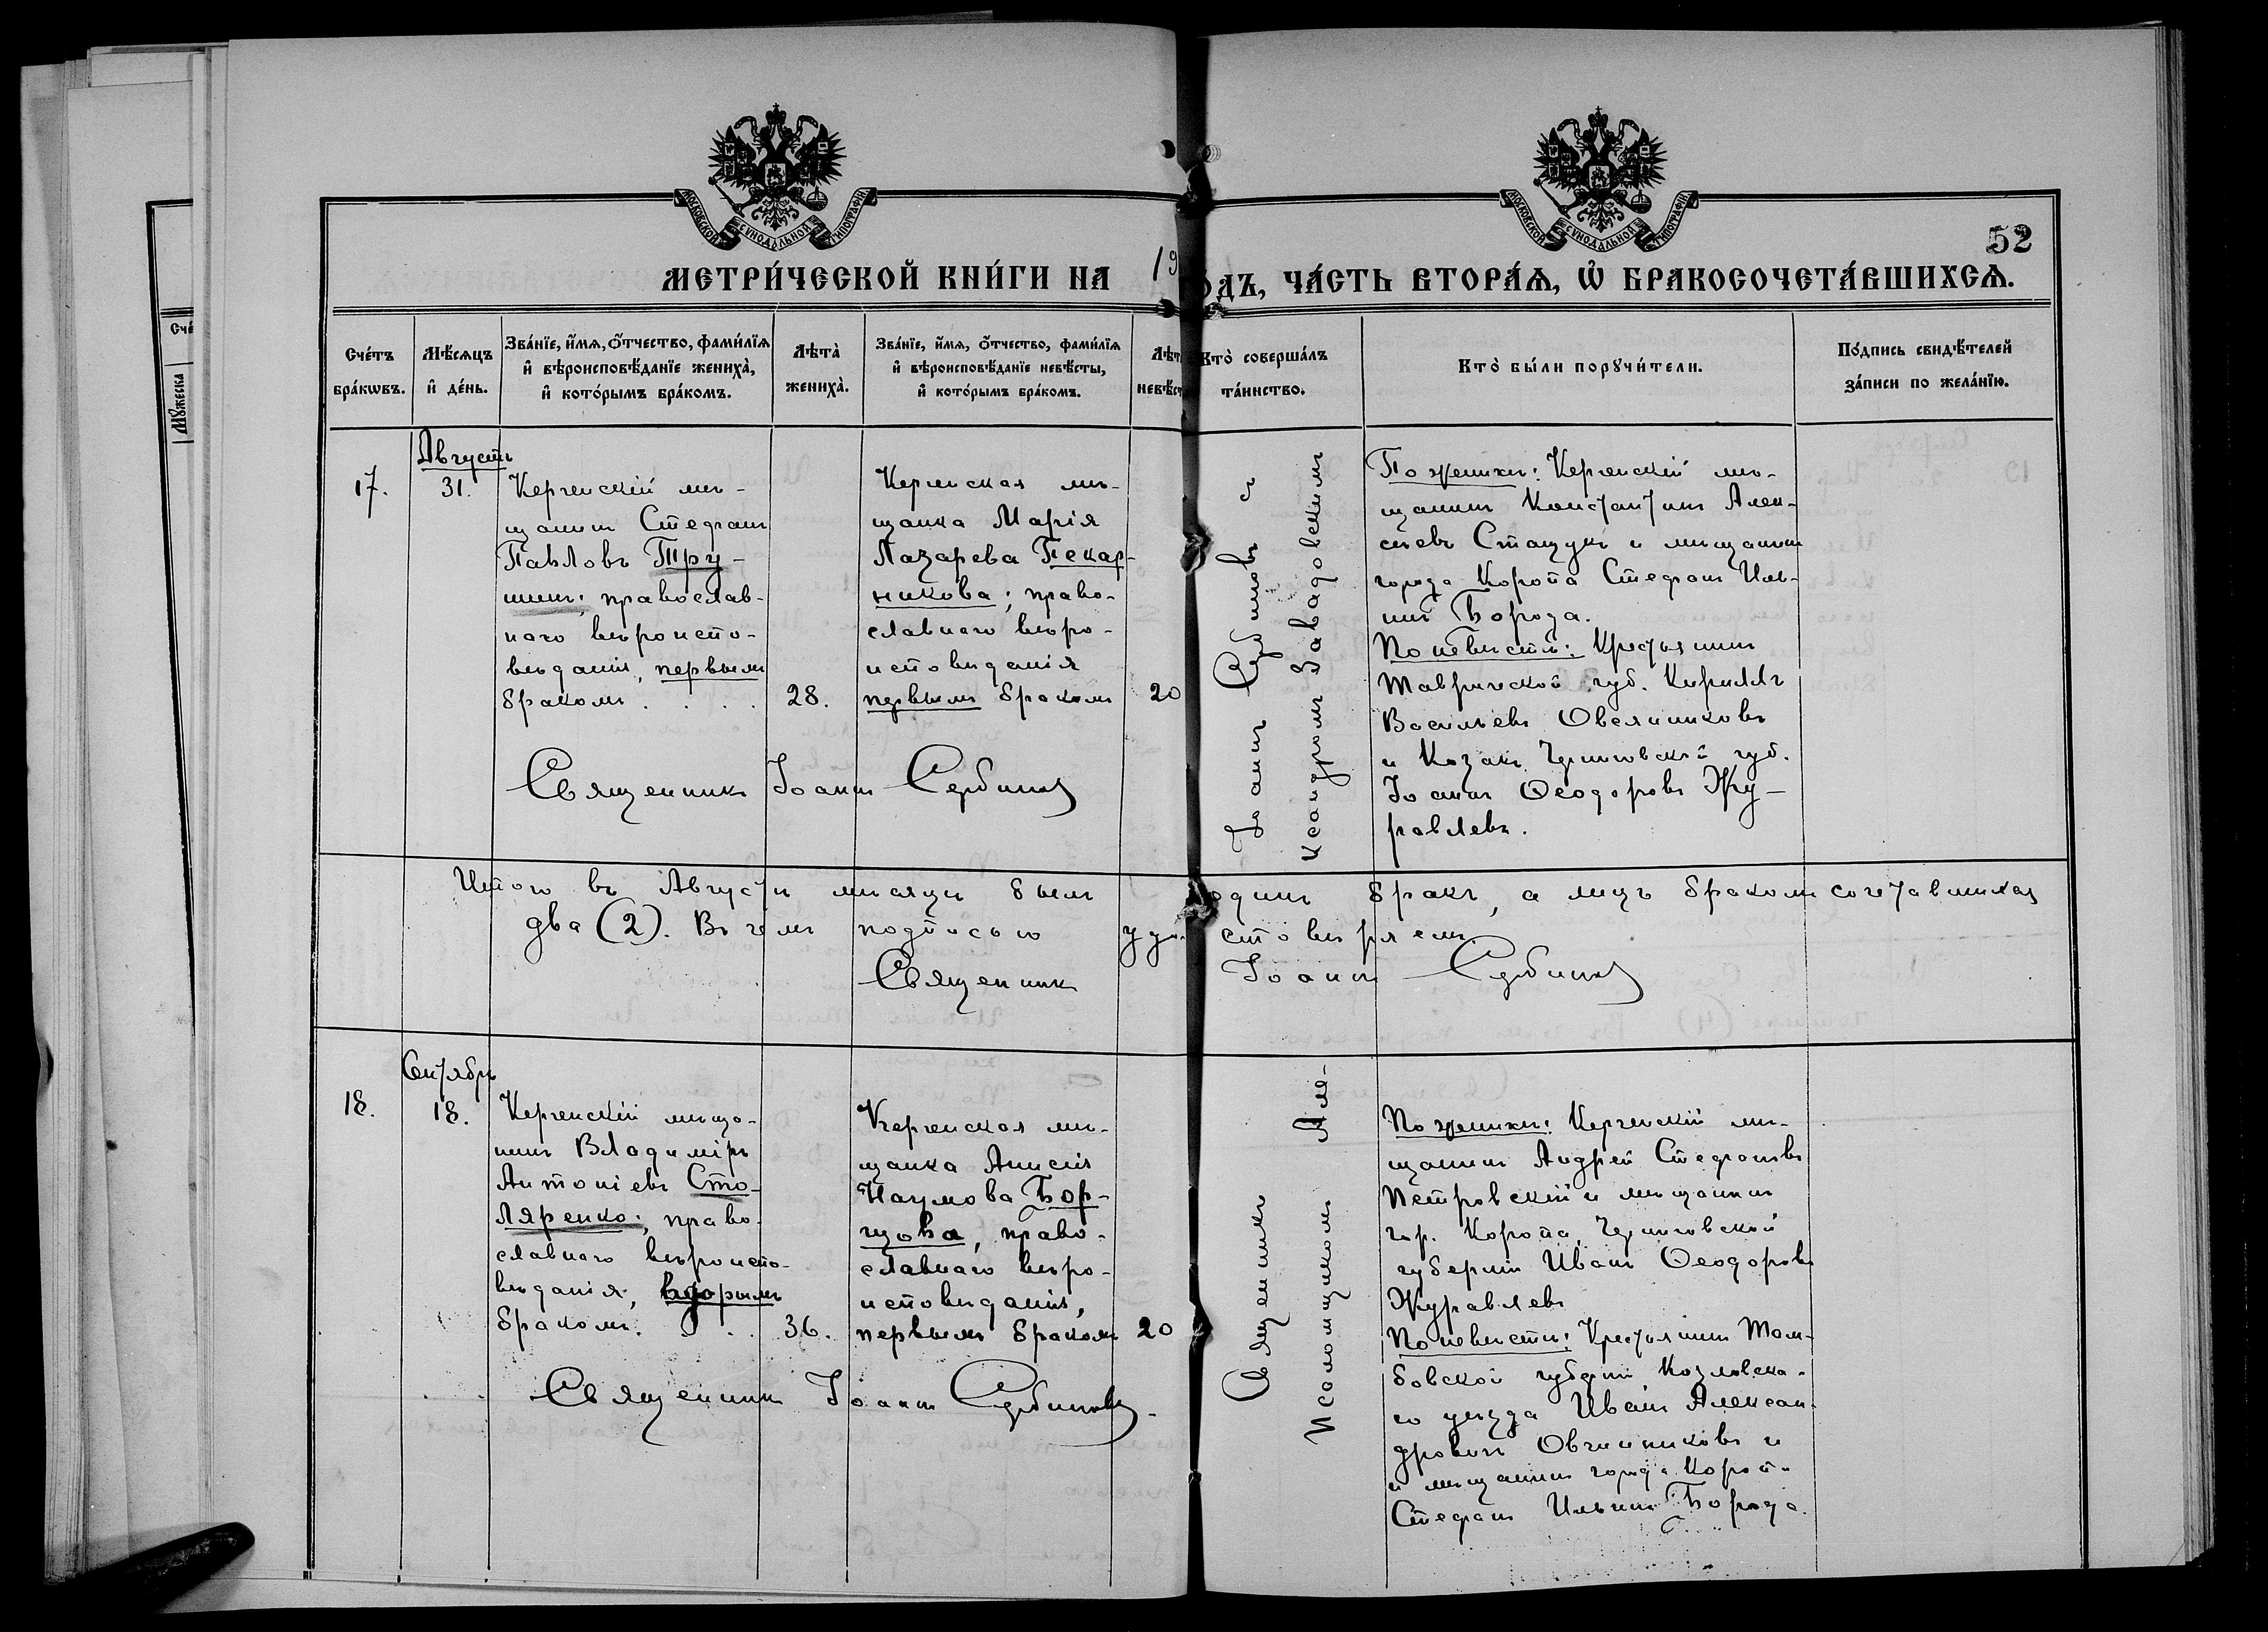 МОСКОВСКОЙ СѴНОДАЛЬНОЙ ТИПОГРАФІИ
МОСКОВСКОЙ СѴНОДАЛЬНОЙ ТИПОГРАФІИ
52
МЕТРИ́ЧЕСКОЙ КНИ́ГИ НА 19
ОДЪ, ЧА́СТЬ ВТОРА́Ѧ, Ѽ БРАКОСОЧЕТА́ВШИХСѦ.
Сче́тъ
бра́кѡвъ.
Мѣ́сѧцъ
и҆ де́нь.
Зва́нїе, и҆́мѧ, ѻ҆́тчество, фами́лїѧ
и҆ вѣроисповѣ́данїе жениха̀,
и҆ кото́рымъ бра́комъ.
Лѣ́та̀
жениха̀.
Зва́нїе, и҆́мѧ, ѻ҆́тчество, фами́лїѧ
и҆ вѣроисповѣ́данїе невѣ́сты,
и҆ кото́рымъ бра́комъ.
Лѣт
невѣ́ст
Кто̀ соверша́лъ
та́инство.
Кто̀ бы́ли порꙋчи́тели.
По́дпись свидѣ́телей
за́писи по жела́нїю.
Счé
Мꙋжеска
17.
Августъ
31.
Керченскій мѣ-
щанинъ Стефанъ
Павловъ Тру-
шинъ; православ-
наго вѣроиспо-
вѣданія, первымъ
бракомъ . . . .
28.
Керченская мѣ-
щанка Марія
Лазарева Пекар-
никова; право-
славнаго вѣро-
исповѣданія
первымъ бракомъ
20
Іоаннъ Сербиновъ съ
ксандромъ Завадовскимъ
По женихѣ: Керченскій мѣ-
щанинъ Константинъ Алек-
сѣевъ Стащукъ и мѣщанинъ
города Коропа Стефанъ Иль-
инъ Борода.
По невѣстѣ: Крестьянинъ
Таврической губ. Кириллъ
Васильевъ Овсянниковъ
и Козакъ Черниговской губ.
Іоаннъ Ѳеодоровъ Жу-
равлевъ.
Священникъ Іоаннъ Сербиновъ
Итого въ Августѣ мѣсяцѣ былъ одинъ бракъ, а лицъ бракомъ сочетавшихся
два (2). Въ чемъ подписью удостовѣряемъ.
Священникъ Іоаннъ Сербиновъ
18.
Сентябрь
18.
Керченскій мѣща-
нинъ Владиміръ
Антоніевъ Сто-
ляренко; право-
славнаго вѣроиспо-
вѣданія, вторымъ
бракомъ. . . .
36.
Керченская мѣ-
щанка Анисія
Наумова Бор-
щова, право-
славнаго вѣро-
исповѣданія,
первымъ бракомъ
20
Священникъ
Псаломщикомъ Але-
По женихѣ: Керченскій мѣ-
щанинъ Андрей Стефановъ
Петровскій и мѣщанинъ
гор. Коропа, Черниговской
губерніи Иванъ Ѳеодоровъ
Журавлевъ
По невѣстѣ: Крестьянинъ Там-
бовской губерніи, Козловска-
го уѣзда Иванъ Алексан-
дровичъ Овчинниковъ и
и мѣщанинъ города Коропа
Стефанъ Ильинъ Борода.
Священникъ Іоаннъ Сербиновъ.